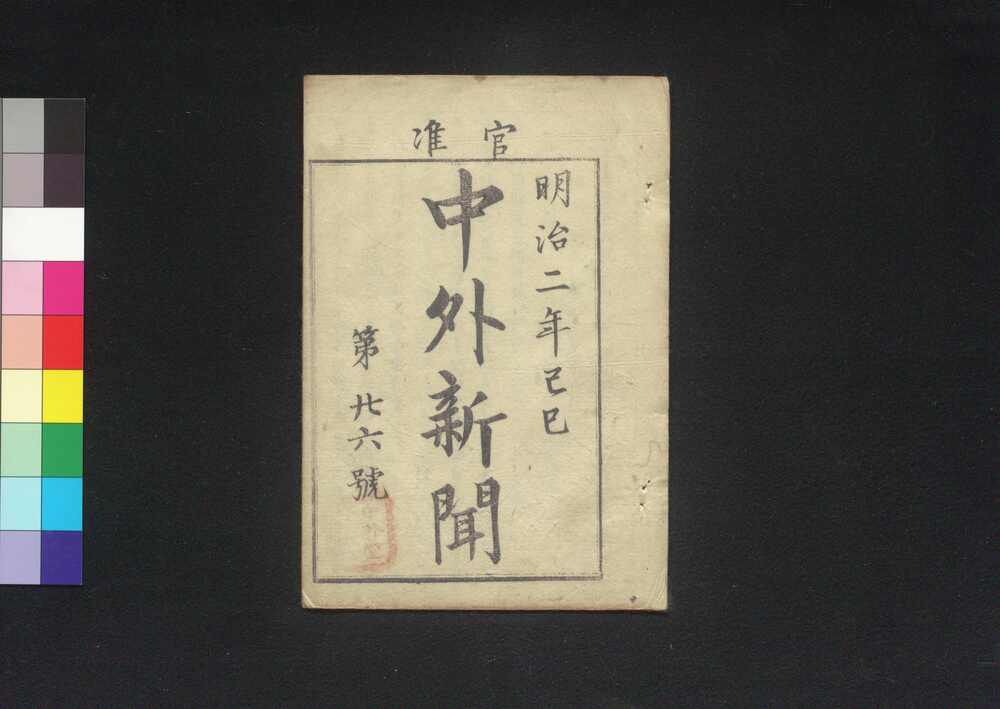 官准
明治二年己巳
中外新聞
第廿六號